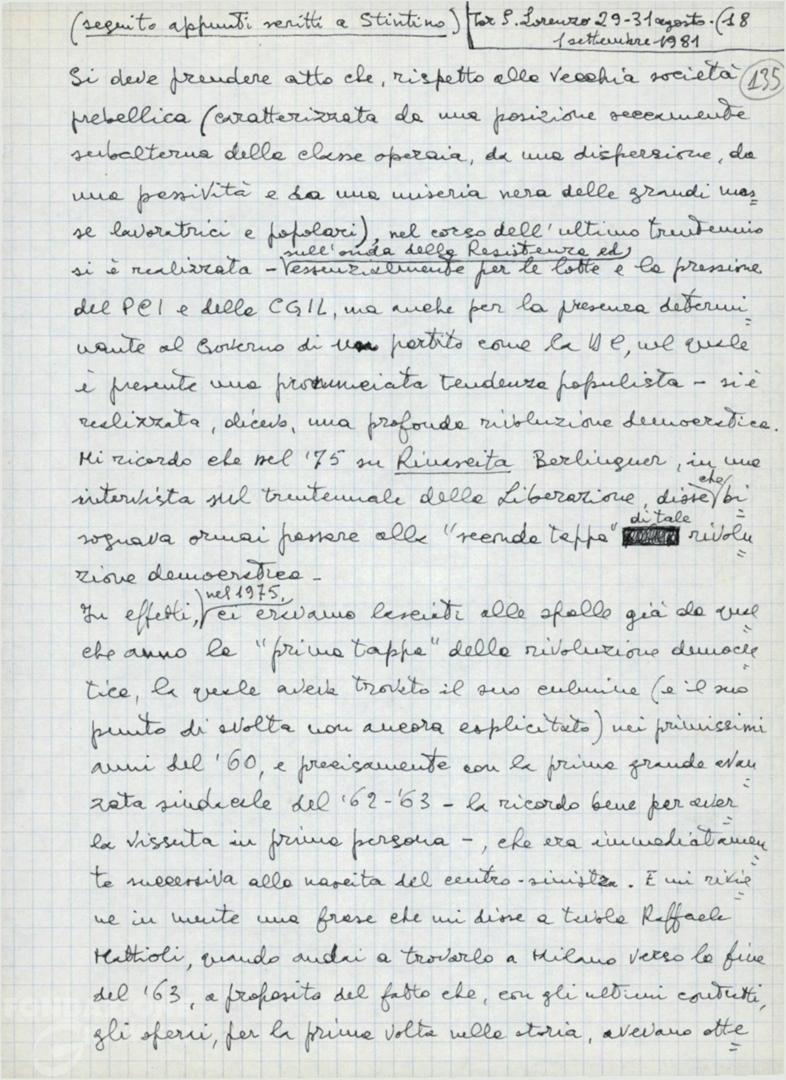 (seguito appunti scritti a Stintino) Tor S. Lorenzo 29-31 agosto - (18
1 settembre 1981
135
Si deve prendere atto che, rispetto alla vecchia società
prebellica (caratterizzata da una posizione seccamente
subalterna della classe operaia, da una dispersione, da
una passività e da una miseria nera delle grandi mas=
se lavoratrici e popolari), nel corso dell'ultimo trentennio
sull'onda della Resistenza ed
si è realizzata - essenzialmente per le lotte e la pressione
del PCI e della CGIL, ma anche per la presenza determi=
nante al Governo di un partito come la DC, nel quale
è presente una pronunciata tendenza populista - si è
realizzata, dicevo, una profonda rivoluzione democratica.
Mi ricordo che nel '75 su Rinascita Berlinguer, in una
intervista sul trentennale della Liberazione, disse che bi=
sognava ormai passare alla "seconda tappa" di tale rivolu=
zione democratica -
In effetti, nel 1975, ci eravamo lasciati alle spalle già da qual=
che anno la "prima tappa" della rivoluzione democra=
tica, la quale aveva trovato il suo culmine (e il suo
punto di svolta non ancora esplicitato) nei primissimi
anni del '60, e precisamente con la prima grande avan=
zata sindacale del '62-'63 - la ricordo bene per aver=
la vissuta in prima persona -, che era immediatamen=
te successiva alla nascita del centro-sinistra. E mi rivie=
ne in mente una frase che mi disse a tavola Raffaele
Mattioli, quando andai a trovarlo a Milano verso la fine
del '63, a proposito del fatto che, con gli ultimi contratti,
gli operai, per la prima volta nella storia, avevano otte=